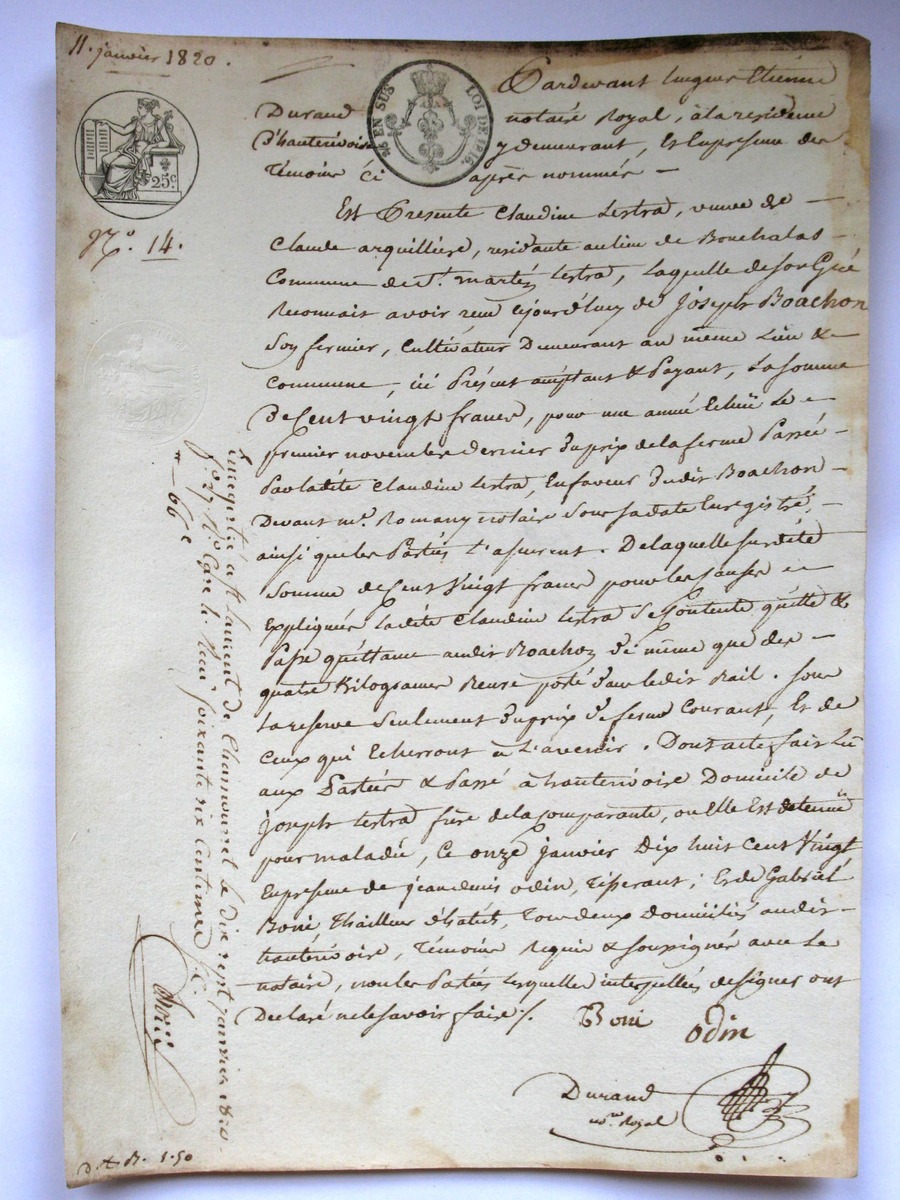 11. janvier 1820.
25.c
EN SUS LOI DE 1816.
N.o 14.
Pardevant Etienne
Durand notaire Royal, à la residence
d'hauterivoire y demeurant, Et En presence des
Témoins Ci après nommés —
Est Presente Claudine Lestra, veuve de —
Claude arquilliere, residante au lieu de Bouchalas —
Commune de St. martin Lestra, laquelle de son Gré
Reconnait avoir recu cejourd'huy de Joseph Boachon
Son fermier, Cultivateur Demeurant au même Lieu &
Commune, ici Présent acceptant & Payant, La somme
De Cent vingt francs, pour une année Echue Le
premier novembre dernier du prix de la ferme Passée —
Par ladite Claudine Lestra, En faveur dudit Boachon —
Devant me. Romany notaire sous sa date Enregistré,
ainsi que les Parties L'assurent. De laquelle susdite
Somme de Cent Vingt francs pour les causes
Expliquées ladite Claudine Lestra Se Contente quitte &
Passe quittance audit Boachon de même que des —
quatre Kilogrames Beure porté dans ledit Bail. Sous
La reserve Seulement du prix de ferme Courant, Et de
Ceux qui Echerront à L'avenir. Dont acte fait Lu
aux Parties & Passé à hauterivoire Domicile de
Joseph Lestra frère de la Comparante, ou Elle Est detenue
pour maladie, Ce onze janvier Dix huit Cent Vingt
En presence de jean denis odin, Tisserant; Et de Gabriel
Boni, Thailleur d'habits, Tous deux domiciliés audit —
hauterivoire, Témoins Requis & soussignés avec Le
notaire, non les Parties lesquelles interpellées de signer ont
Declaré ne le savoir faire ./.
Boni odin
Durand
nore Royal
Enregistré à St Laurent de Chamousset le dix sept janvier 1820
fo. 27 Ro. Cse 1e. Recu soixante six Centimes
66 c
D. & R. 1.50